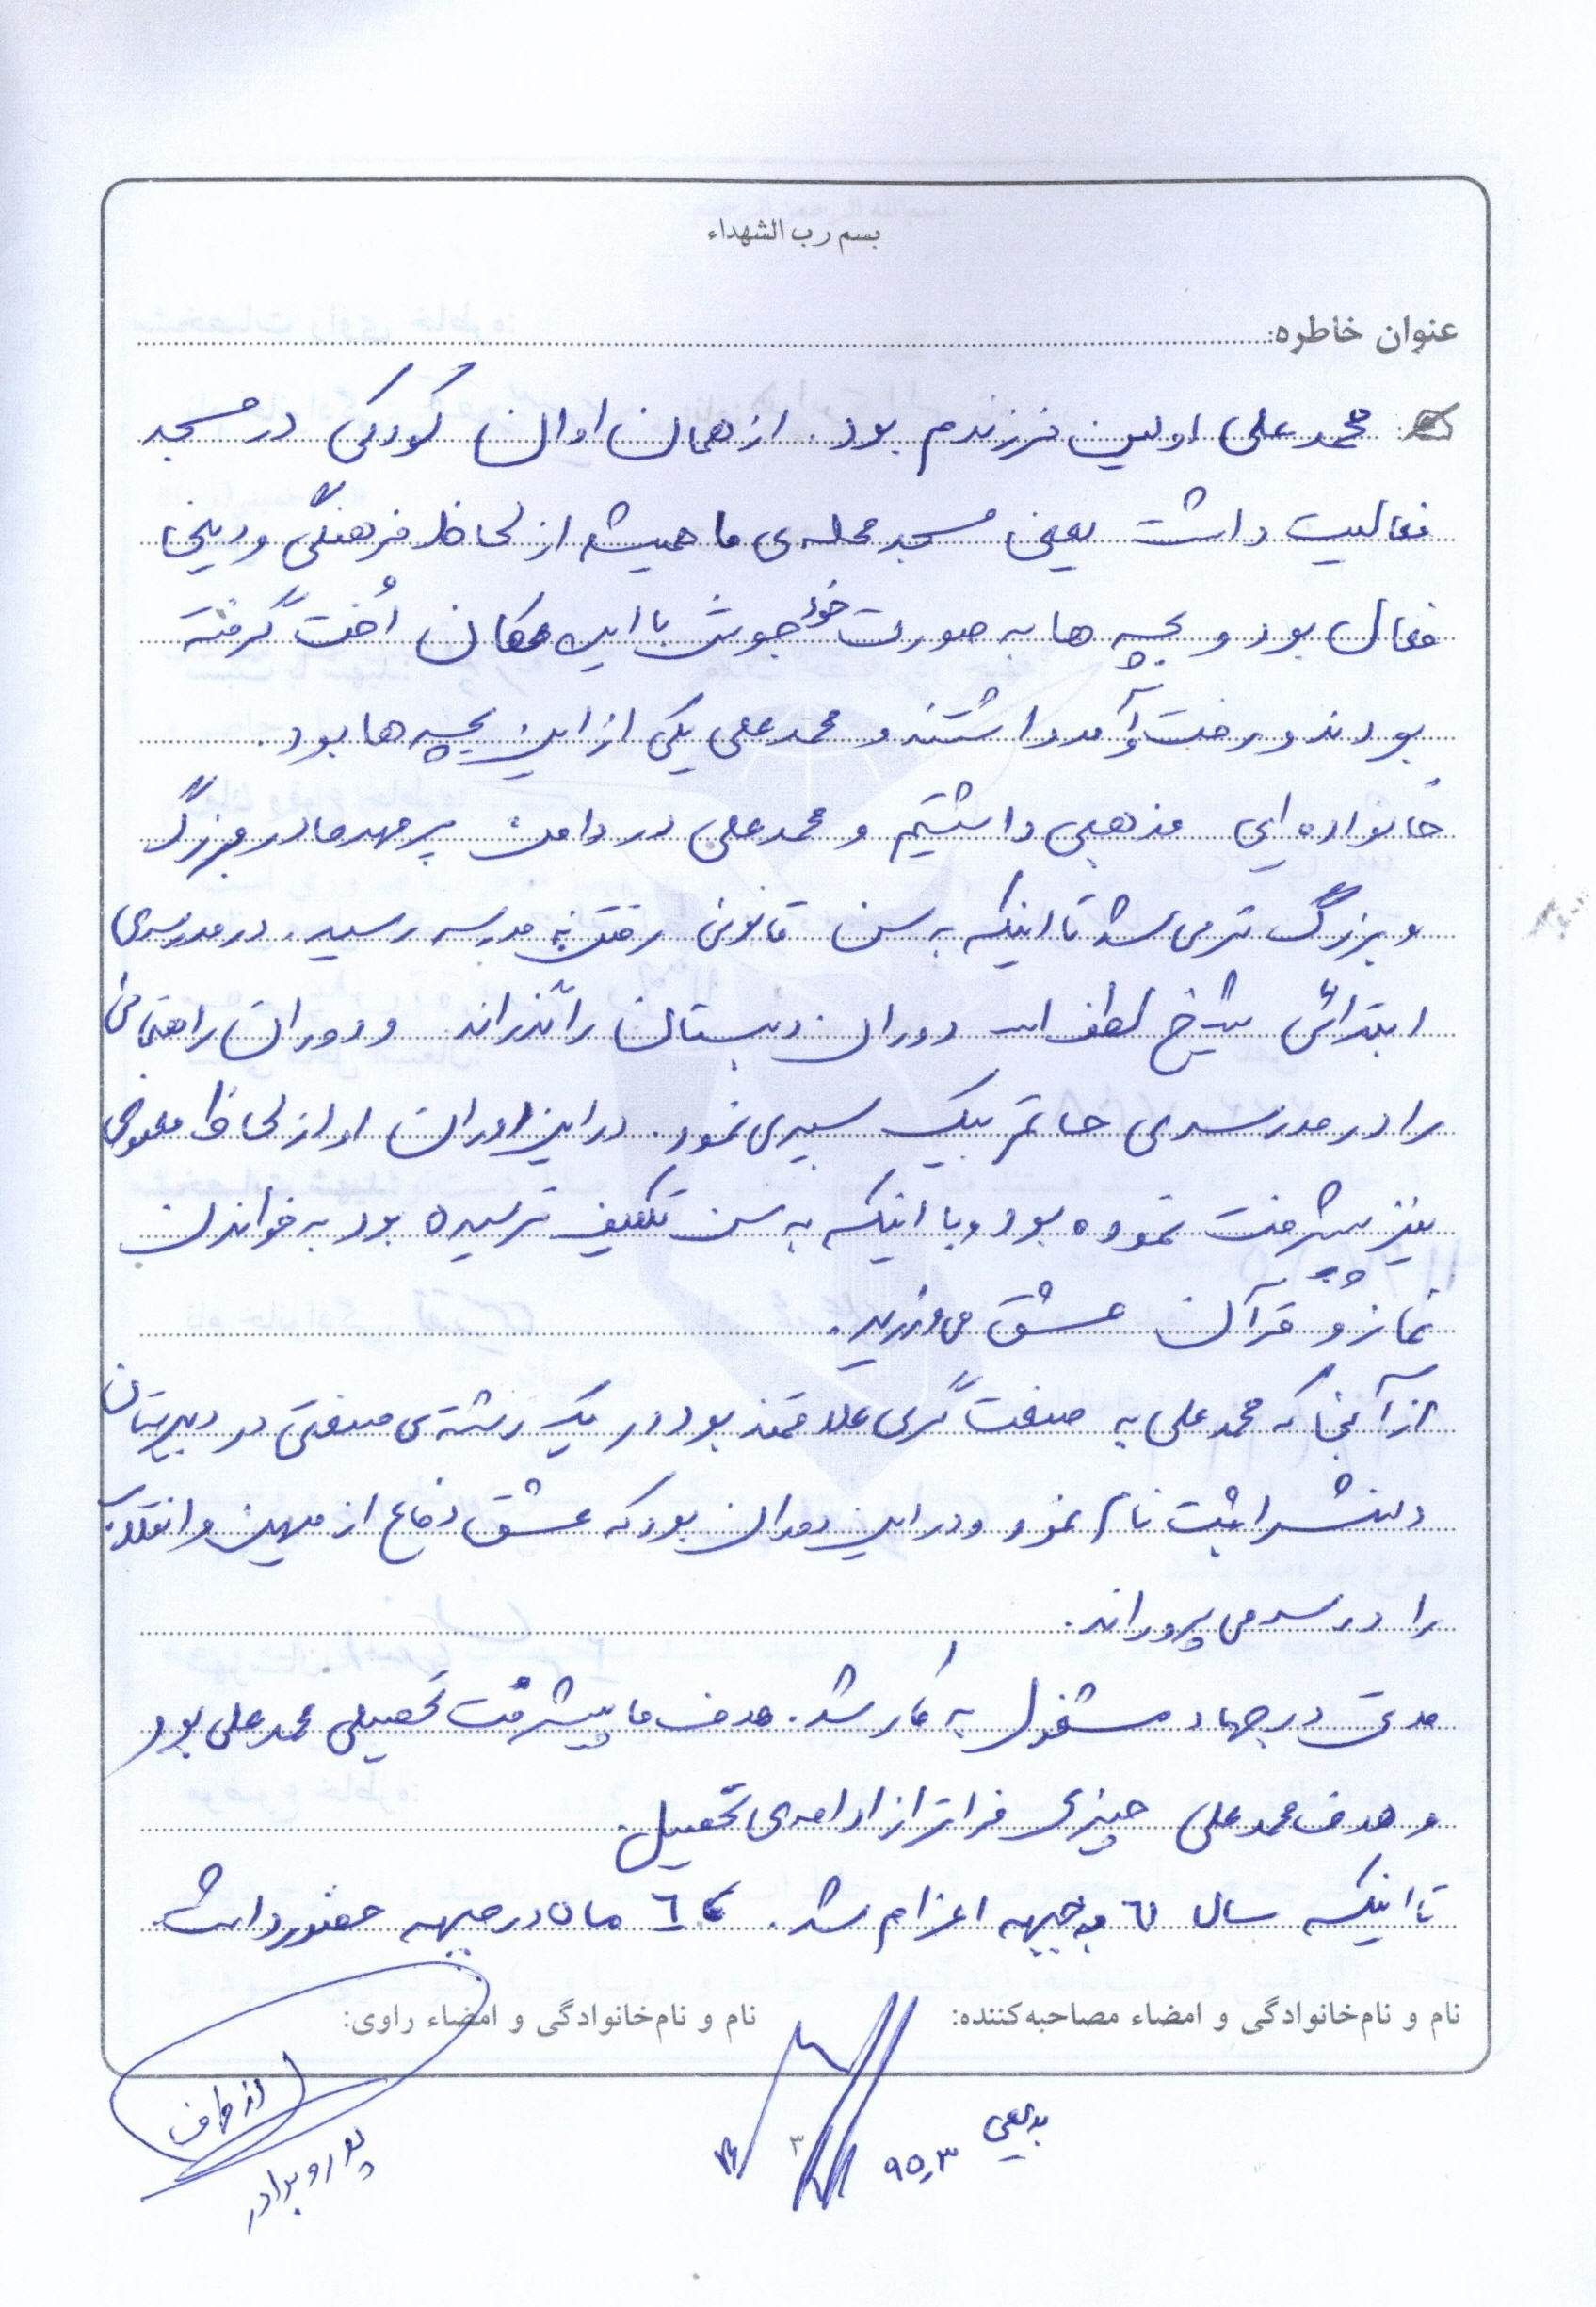 بسم رب الشهداء
عنوان خاطره:
محمد علی اولین فرزندم بود. از همان اوان کودکی در مسجد
فعالیت داشت یعنی مسجد محله‌ی ما همیشه از لحاظ فرهنگی و دینی
فعال بود و بچه ها به صورت خود جوش با این مکان اُخت گرفته
بودند و رفت و آمد داشتند و محمد علی یکی از این بچه ها بود.
خانواده ای مذهبی داشتیم و محمد علی در دامن پر مهر مادر بزرگ
و بزرگ تر می شد تا اینکه به سن قانونی رفتن به مدرسه رسید. در مدرسه‌ی
ابتدائی شیخ لطف اله دوران دبستان را گذراند و دوران راهنمائی
را در مدرسه‌ی حاتم بیک سپری نمود. در این دوران او از لحاظ معنوی
نیز پیشرفت نموده بود و با اینکه به سن تکلیف نرسیده بود به خواندن
نماز و قرآن عشق می ورزید.
از آنجا که محمد علی به صنعت گری علاقمند بود در یک رشته‌ی صنعتی در دبیرستان
ثبت نام نمود و در این دوران بود که عشق دفاع از میهن و انقلاب
را در سر می پروراند.
مدتی در جهاد مشغول به کار شد. هدف ما پیشرفت تحصیلی محمد علی بود
و هدف محمد علی چیزی فراتر از ادامه‌ی تحصیل.
تا اینکه سال ٦١ به جبهه اعزام شد. ٦ ماه در جبهه حضور داشت
نام و نام‌خانوادگی و امضاء مصاحبه‌کننده:
نام و نام‌خانوادگی و امضاء راوی:
بدیعی
۹۵٫۳
۳
از طرف
پدر و برادر